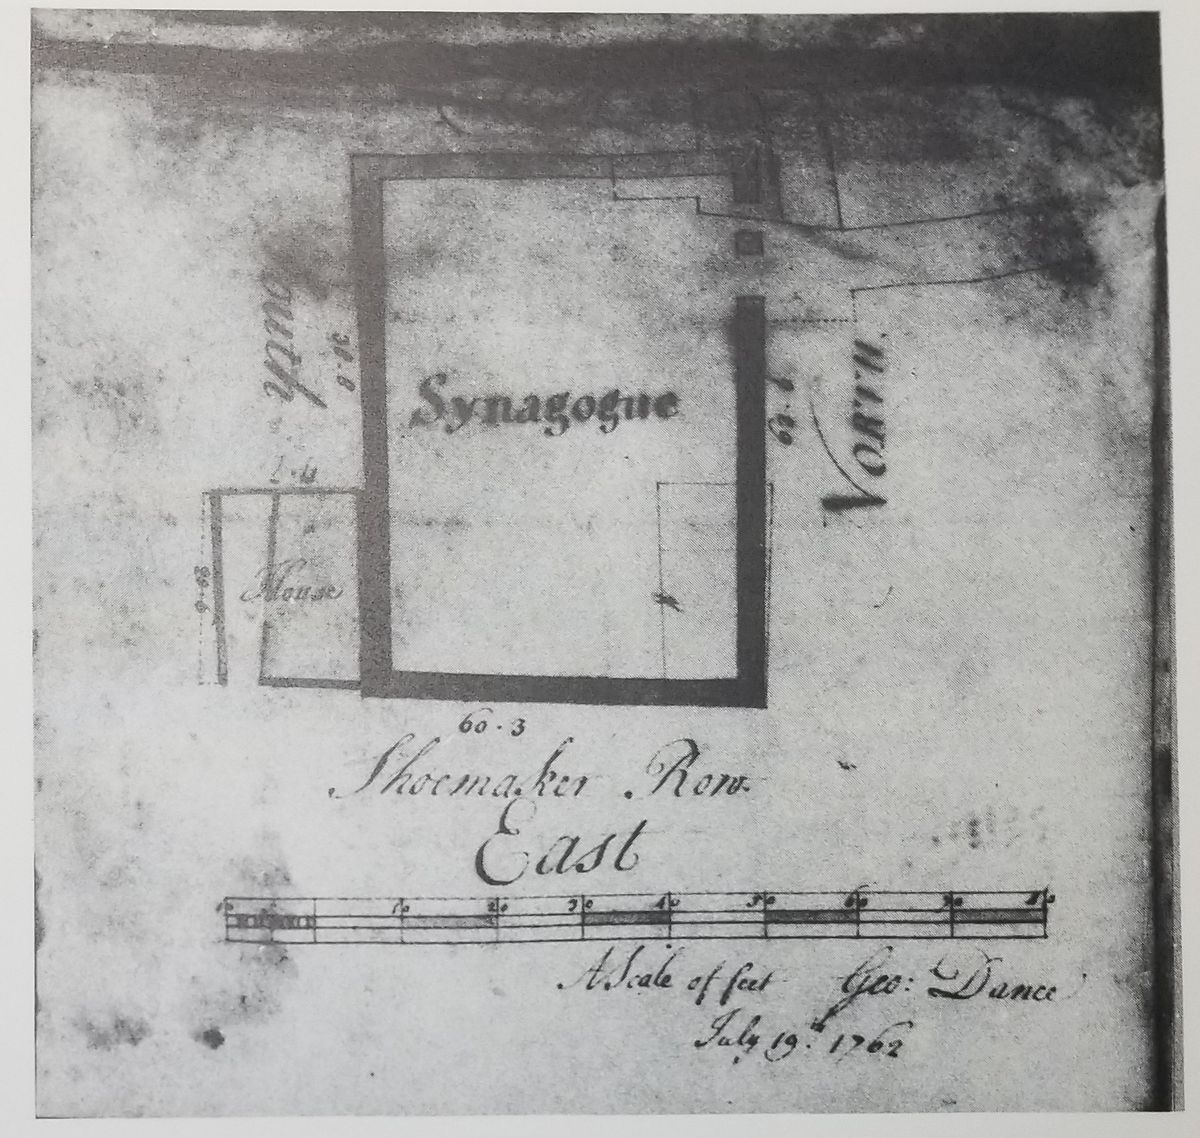 South
Synagogue
North
House
60 . 3
Shoemaker Row
East
10 10 20 30 40 50 60 70 80
A Scale of feet Geo: Dance
July 19th. 1762